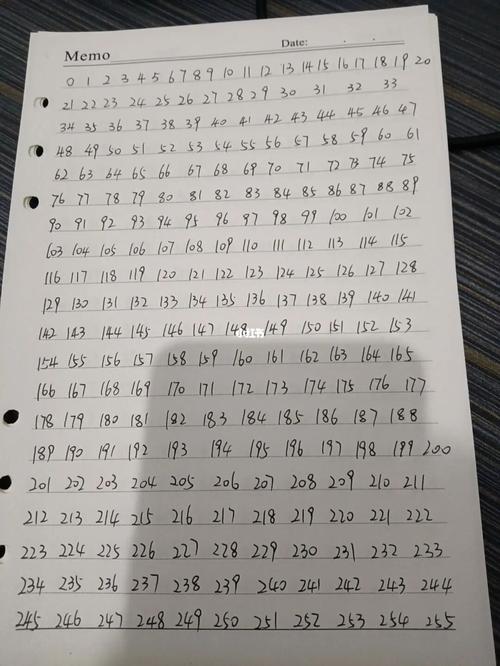 Memo
Date:
0 1 2 3 4 5 6 7 8 9 10 11 12 13 14 15 16 17 18 19 20
21 22 23 24 25 26 27 28 29 30 31 32 33
34 35 36 37 38 39 40 41 42 43 44 45 46 47
48 49 50 51 52 53 54 55 56 57 58 59 60 61
62 63 64 65 66 67 68 69 70 71 72 73 74 75
76 77 78 79 80 81 82 83 84 85 86 87 88 89
90 91 92 93 94 95 96 97 98 99 100 101 102
103 104 105 106 107 108 109 110 111 112 113 114 115
116 117 118 119 120 121 122 123 124 125 126 127 128
129 130 131 132 133 134 135 136 137 138 139 140 141
142 143 144 145 146 147 148 149 150 151 152 153
小红书
154 155 156 157 158 159 160 161 162 163 164 165
166 167 168 169 170 171 172 173 174 175 176 177
178 179 180 181 182 183 184 185 186 187 188
189 190 191 192 193 194 195 196 197 198 199 200
201 202 203 204 205 206 207 208 209 210 211
212 213 214 215 216 217 218 219 220 221 222
223 224 225 226 227 228 229 230 231 232 233
234 235 236 237 238 239 240 241 242 243 244
245 246 247 248 249 250 251 252 253 254 255